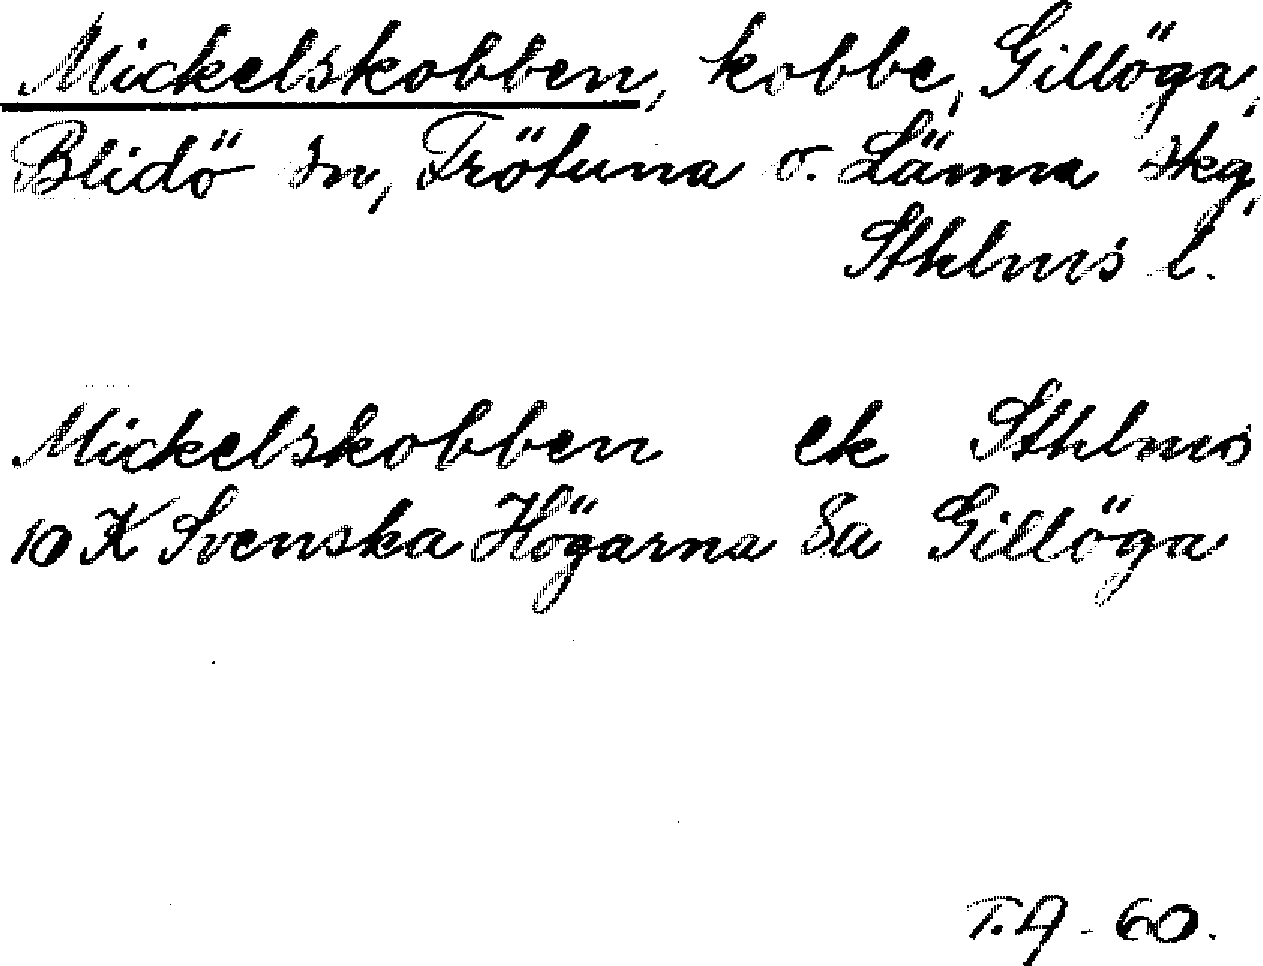 Mickelskobben, kobbe, Gillöga,
Blidö sn, Frötuna o. Länna skg,
Sthlms l.
Mickelskobben ek Sthlms
10 K Svenska Högarna Sa Gillöga
T.A. 60.